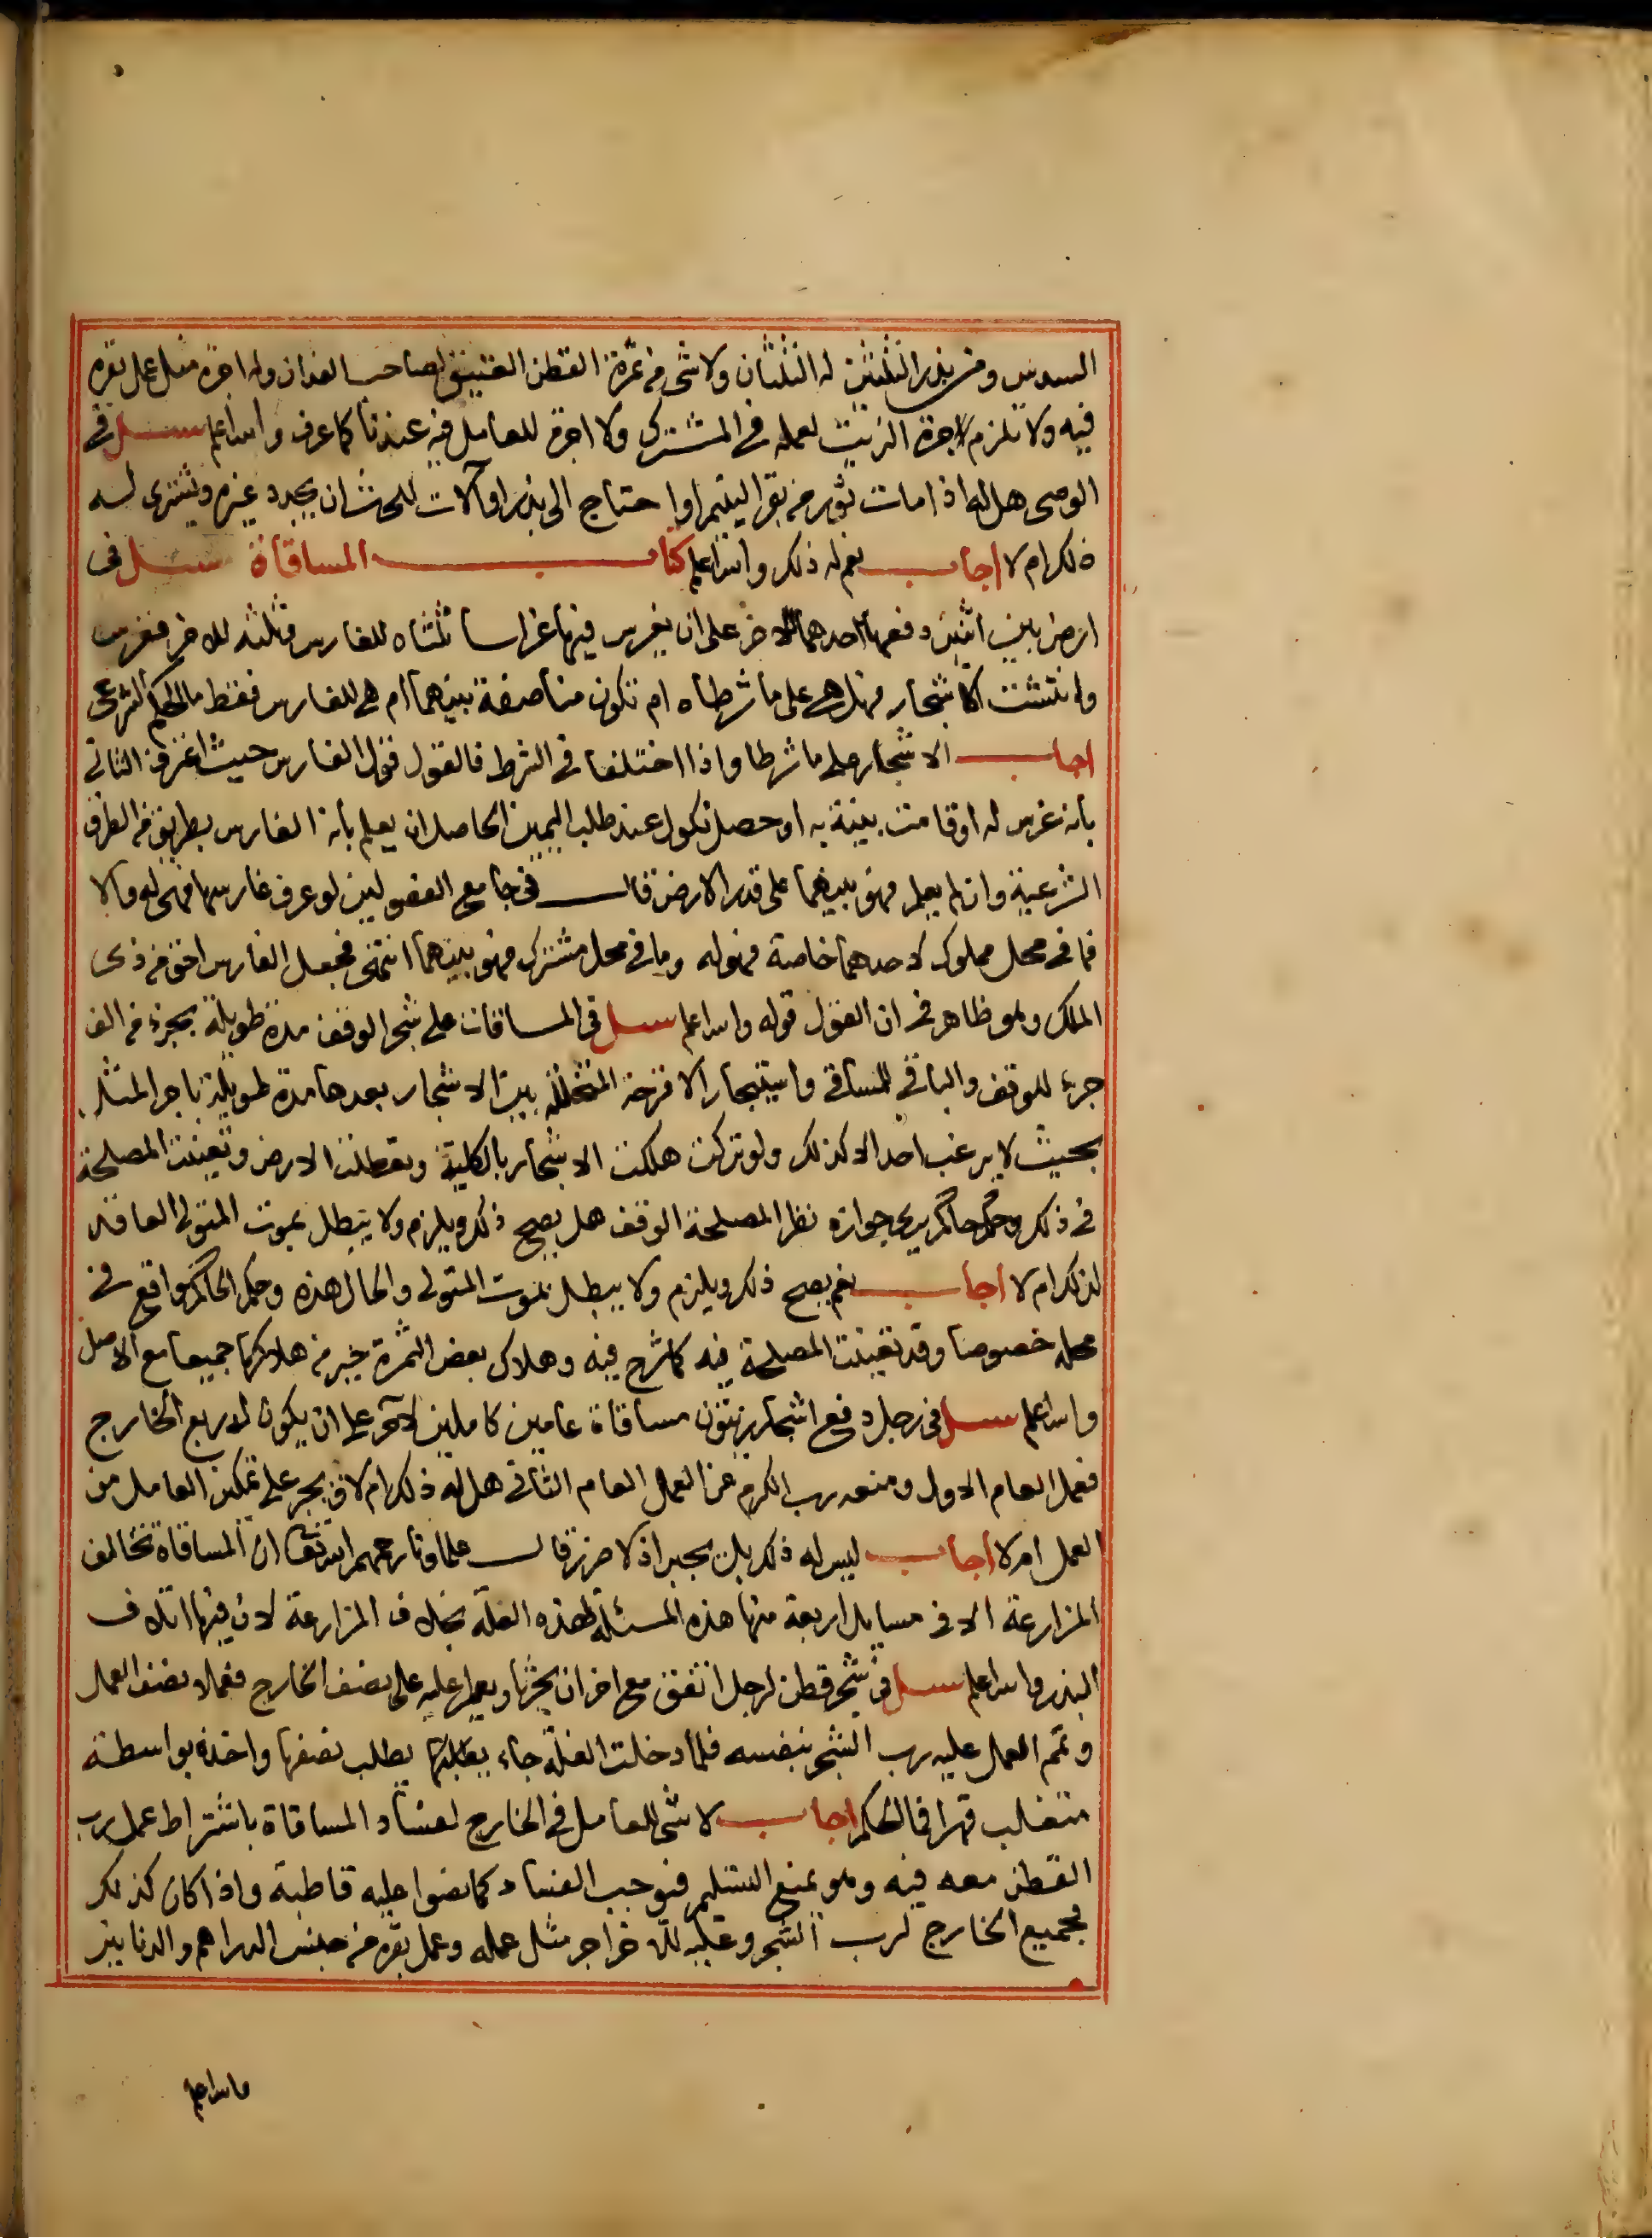 السدس ومن بذر الثلثين له الثلثان ولا شى من ثمرة القطن العتيق لصاحب الفدان وله اجرة مثل عمل بقره
فيه ولا تلزم اجرة الزيت لعمله فى المشترك ولا اجرة للعامل فيه عندنا كما عرف والله اعلم سئل فى
الوصى هل له اذا مات ثور من بقر اليتيم او احتاج الى بذر او آلات للحرث ان يجدد غيره ويشترى له
ذلك ام لا اجاب نعم له ذلك والله اعلم كتاب المساقاة سئل فى
ارض بين اثنين دفعها احدهما للاخر على ان يغرس فيها غراسا ثلثاه للغارس وثلثه للاخر فغرس
وانتشت الاشجار فهل هى على ما شرطاه ام تكون مناصفة بينهما ام هى للغارس فقط ما الحكم الشرعى
اجاب الاشجار على ما شرطا واذا اختلفا فى الشرط فالقول قول الغارس حيث اعترف الثانى
بانه غرس له او قامت بينة به او حصل نكول عند طلب اليمين الحاصل ان يعلم بانه الغارس بطريق من الطرق
الشرعية وان لم يعلم فهو بينهما على قدر الارض قال فى جامع الفصولين لو عرف غارسها فهى له والا
فما فى محل مملوك لاحدهما خاصة فهو له وما فى محل مشترك فهو بينهما انتهى فجعل الغارس احق من ذى
الملك وهو ظاهر فى ان القول قوله والله اعلم سئل فى المساقات على شجر الوقف مدة طويلة بجزء من الف
جزء للوقف والباقى للمساقى واستيجار الافرحة المتخللة بين الاشجار بعدها مدة طويلة باجر المثل
بحيث لا يرغب احد الا كذلك ولو تركت هلكت الاشجار بالكلية وتعطلت الارض وتعينت المصلحة
فى ذلك وحكم حاكم يرى جوازه نظرا لمصلحة الوقف هل يصح ذلك ويلزم ولا يبطل بموت المتولى العاقد
لذلك ام لا اجاب نعم يصح ذلك ويلزم ولا يبطل بموت المتولى والحال هذه وحكم الحاكم واقع فى
محله خصوصا وقد تعينت المصلحة فيه كما شرح فيه وهلاك بعض الثمرة خير من هلاكها جميعا مع الاصل
والله اعلم سئل فى رجل دفع اشجار زيتون مساقاة عامين كاملين لآخر على ان يكون له ربع الخارج
فعمل العام الاول ومنعه رب الكرم عن العمل العام الثانى هل له ذلك ام لا ويجبر على تمكين العامل من
العمل ام لا اجاب ليس له ذلك بل يجبر اذ لا ضرر قال علماؤنا رحمهم الله تعالى ان المساقاة تخالف
المزارعة الا فى مسايل اربعة منها هذه المسئلة لهذه العلة بخلاف المزارعة لان فيها اتلاف
البذر والله اعلم سئل فى شجر قطن لرجل اتفق مع اخر ان يحرثها ويعمل عليه على نصف الخارج فعملا نصف العمل
وتمم العمل عليه رب الشجر بنفسه فلما دخلت الغلة جاء يطلب نصفها واخذه بواسطة
متغلب قهرا فما الحكم اجاب لا شى للعامل فى الخارج لفساد المساقاة باشتراط عمل رب
القطن معه فيه وهو يمنع التسليم فيوجب الفساد كما نصوا عليه قاطبة واذا كان كذلك
فجميع الخارج لرب الشجر وعليه للاخر اجر مثل عمله وعمل بقره من جنس الدراهم والدنانير
والله اعلم